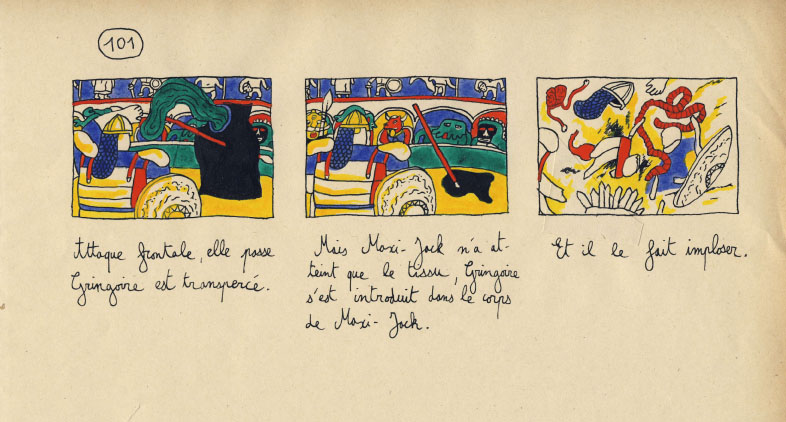 101
Attaque frontale, elle passe
Gringoire est transpercé.
Mais Maxi-Jack n'a at-
teint que le tissu, Gringoire
s'est introduit dans le corps
de Maxi-Jack.
Et il le fait imploser.